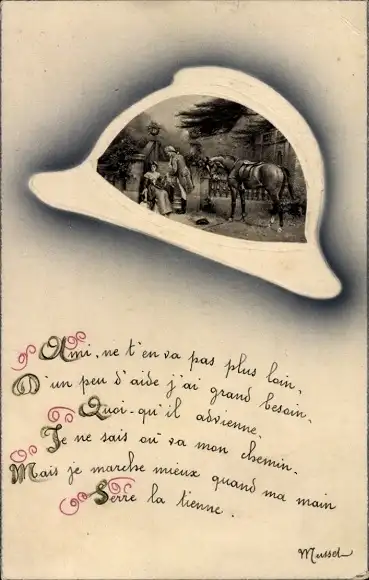 Ami, ne t'en va pas plus loin,
D'un peu d'aide j'ai grand besoin,
Quoi-qu'il advienne.
Je ne sais où va mon chemin.
Mais je marche mieux quand ma main
Serre la tienne.
Musset